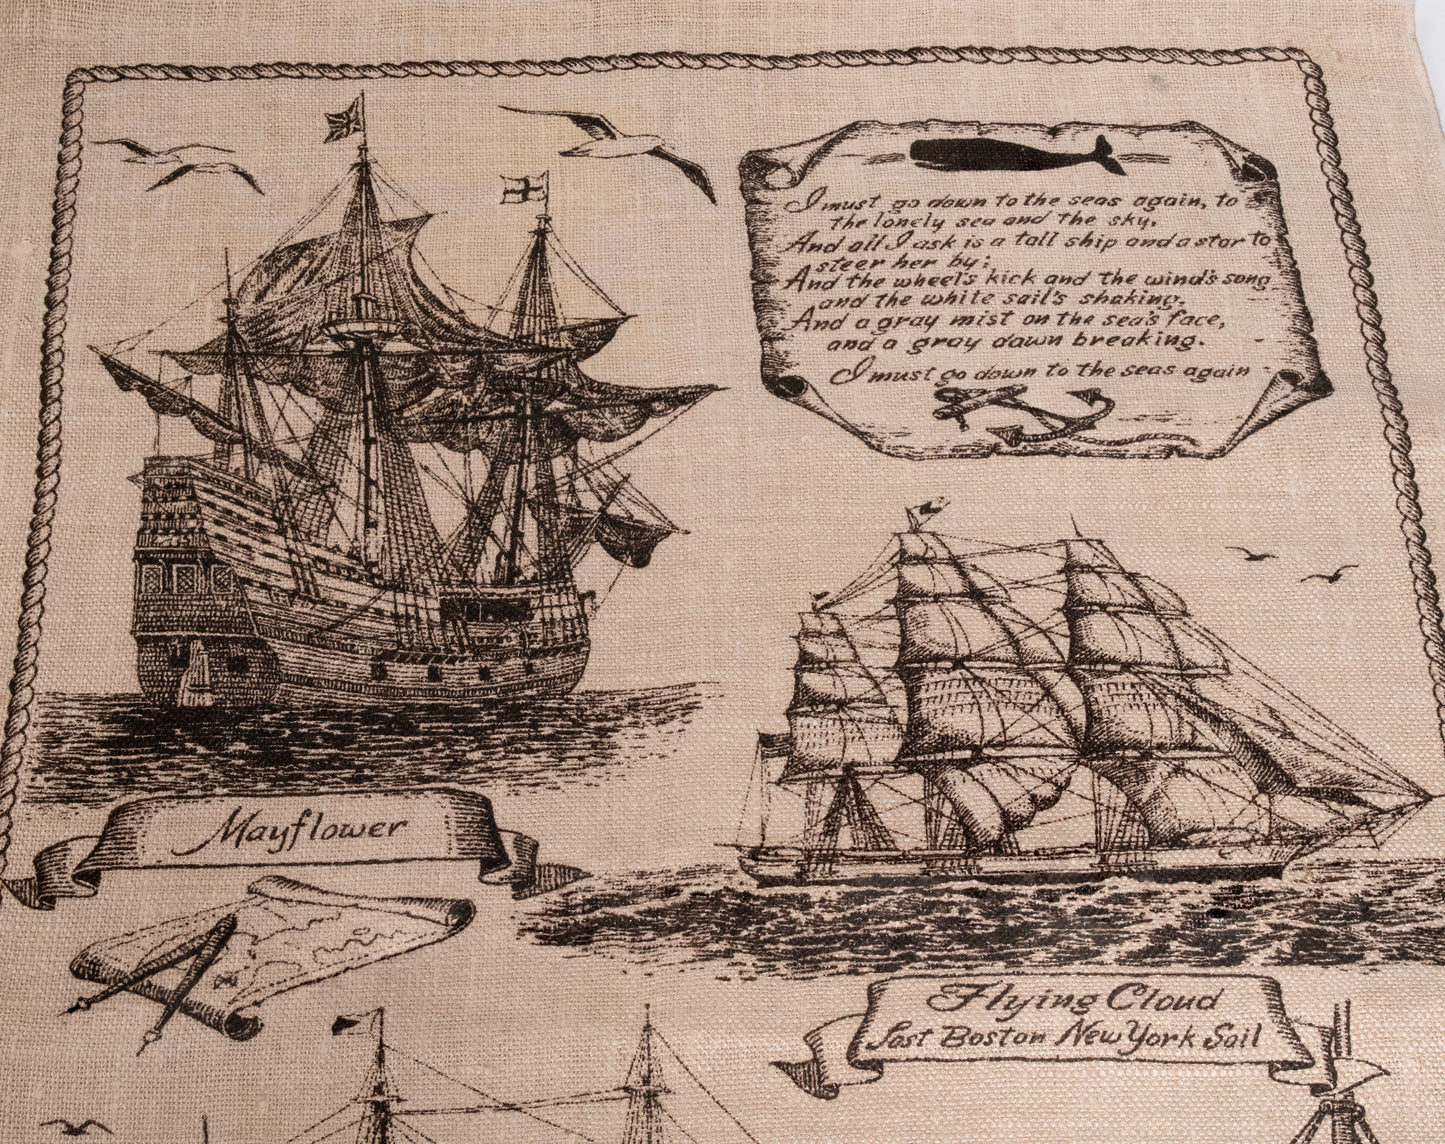 I must go down to the seas again, to
the lonely sea and the sky.
And all I ask is a tall ship and a star to
steer her by;
And the wheel's kick and the wind's song
and the white sail's shaking.
And a gray mist on the sea's face,
and a gray dawn breaking.
I must go down to the seas again -
Mayflower
Flying Cloud
Fast Boston New York Sail